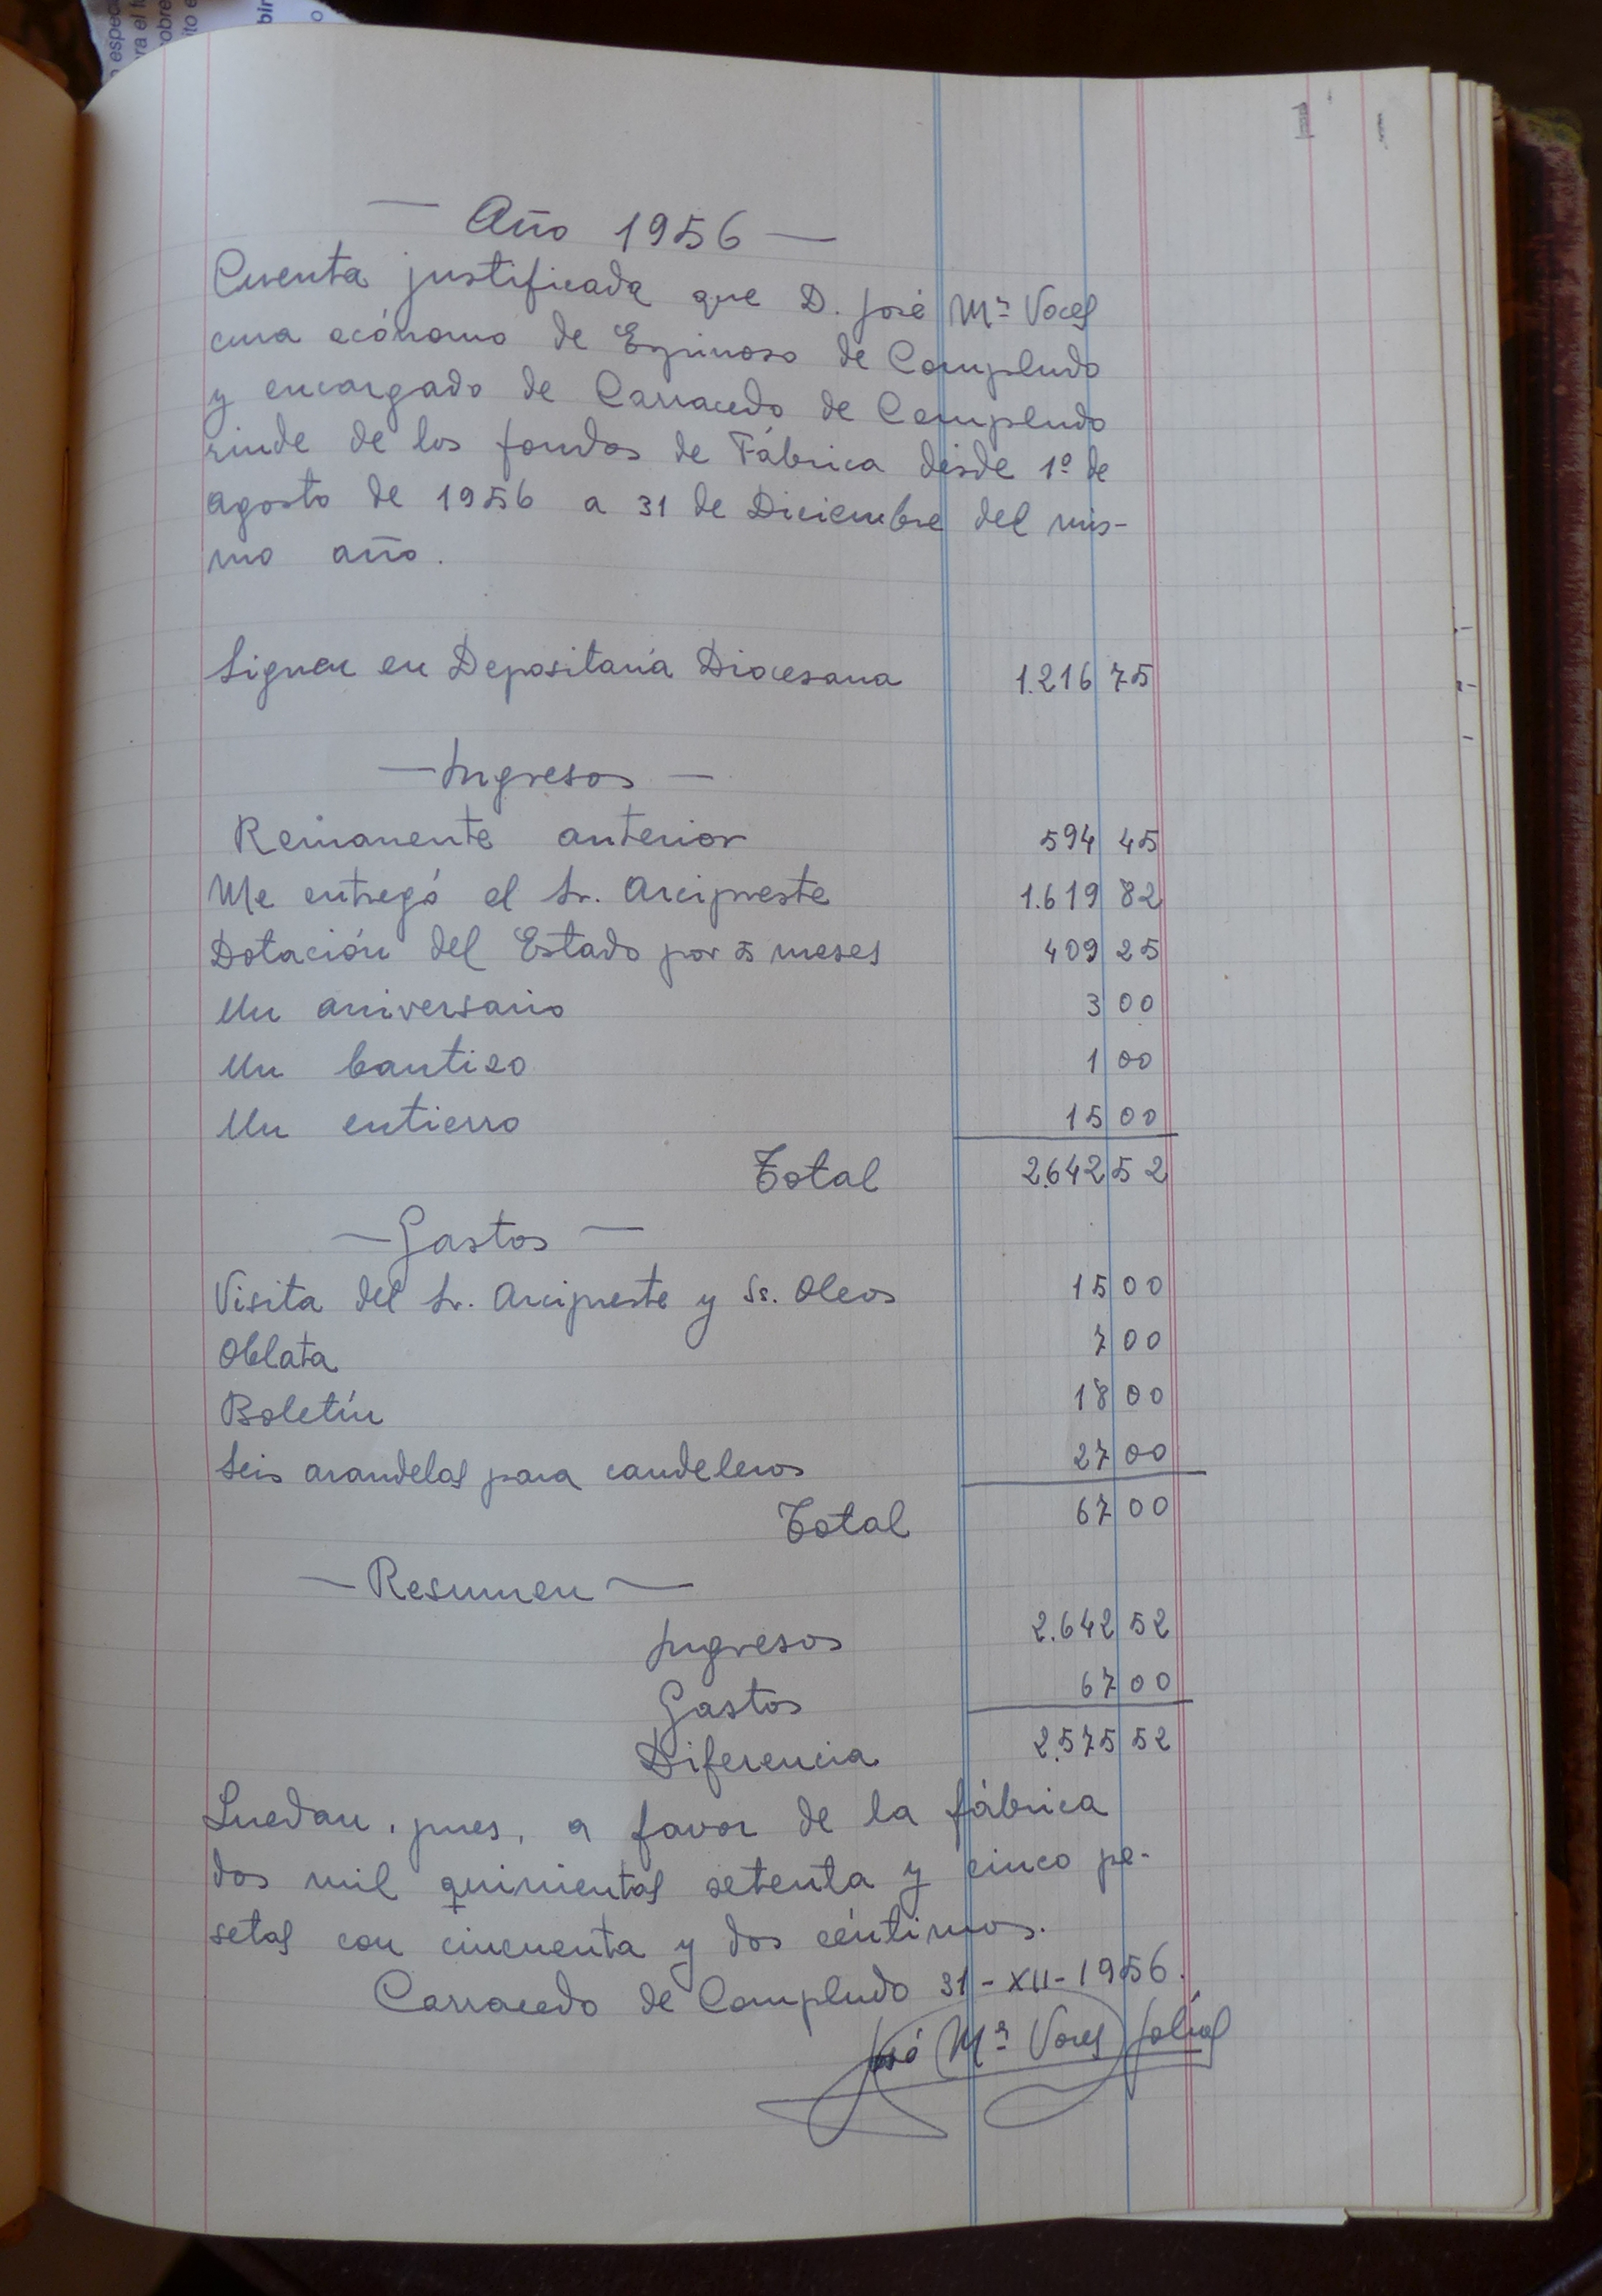 — Año 1956 —
Cuenta justificada que D. José Mª Voces
cura ecónomo de Espinoso de Compludo
y encargado de Carracedo de Compludo
rinde de los fondos de Fábrica desde 1º de
agosto de 1956 a 31 de Diciembre del mis-
mo año.
Siguen en Depositaría Diocesana 1.216 75
— Ingresos —
Remanente anterior 594 45
Me entregó el Sr. Arcipreste 1.619 82
Dotación del Estado por 5 meses 409 25
Un aniversario 3 00
Un bautizo 1 00
Un entierro 15 00
Total 2.642 52
— Gastos —
Visita del Sr. Arcipreste y Ss. Oleos 15 00
Oblata 7 00
Boletín 18 00
Seis arandelas para candeleros 27 00
Total 67 00
— Resumen —
Ingresos 2.642 52
Gastos 67 00
Diferencia 2.575 52
Quedan, pues, a favor de la fábrica
dos mil quinientas setenta y cinco pe-
setas con cincuenta y dos céntimos.
Carracedo de Compludo 31-XII-1956.
José Mª Voces